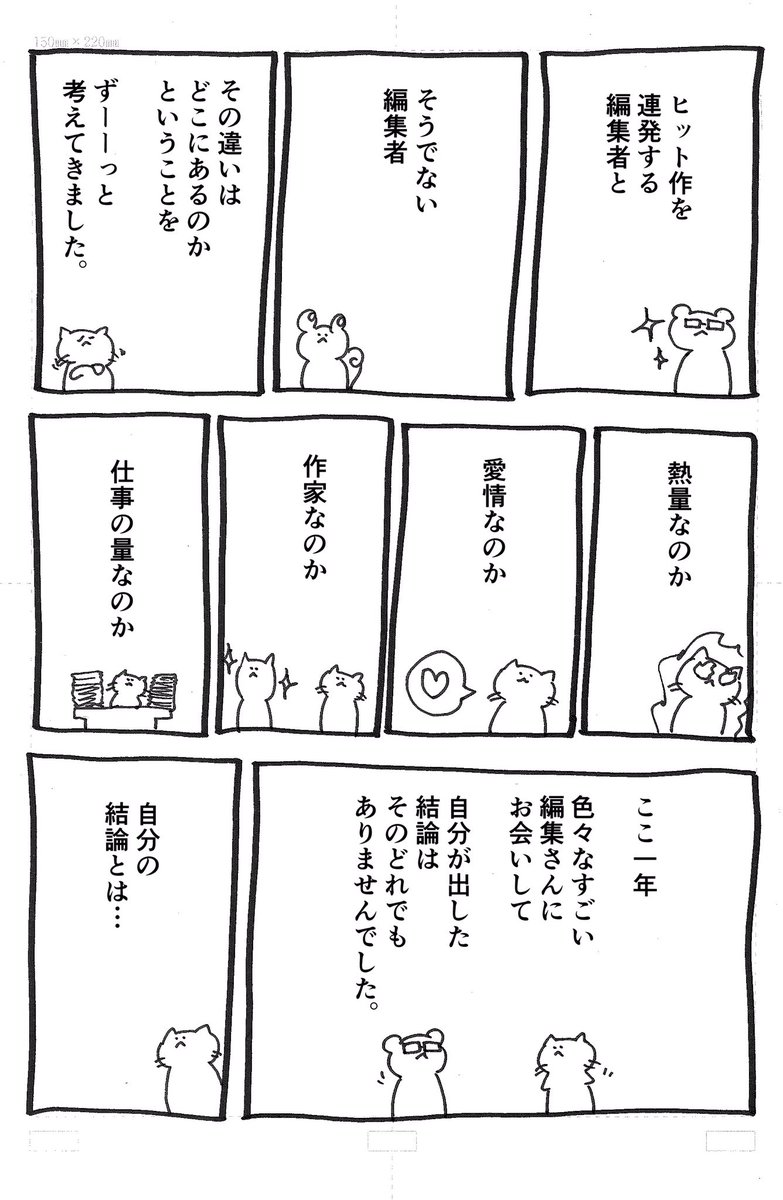 150mm×220mm
ヒット作を
連発する
編集者と
そうでない
編集者
その違いは
どこにあるのか
ということを
ずーーっと
考えてきました。
熱量なのか
愛情なのか
作家なのか
仕事の量なのか
ここ一年
色々なすごい
編集さんに
お会いして
自分が出した
結論は
そのどれでも
ありませんでした。
自分の
結論とは…